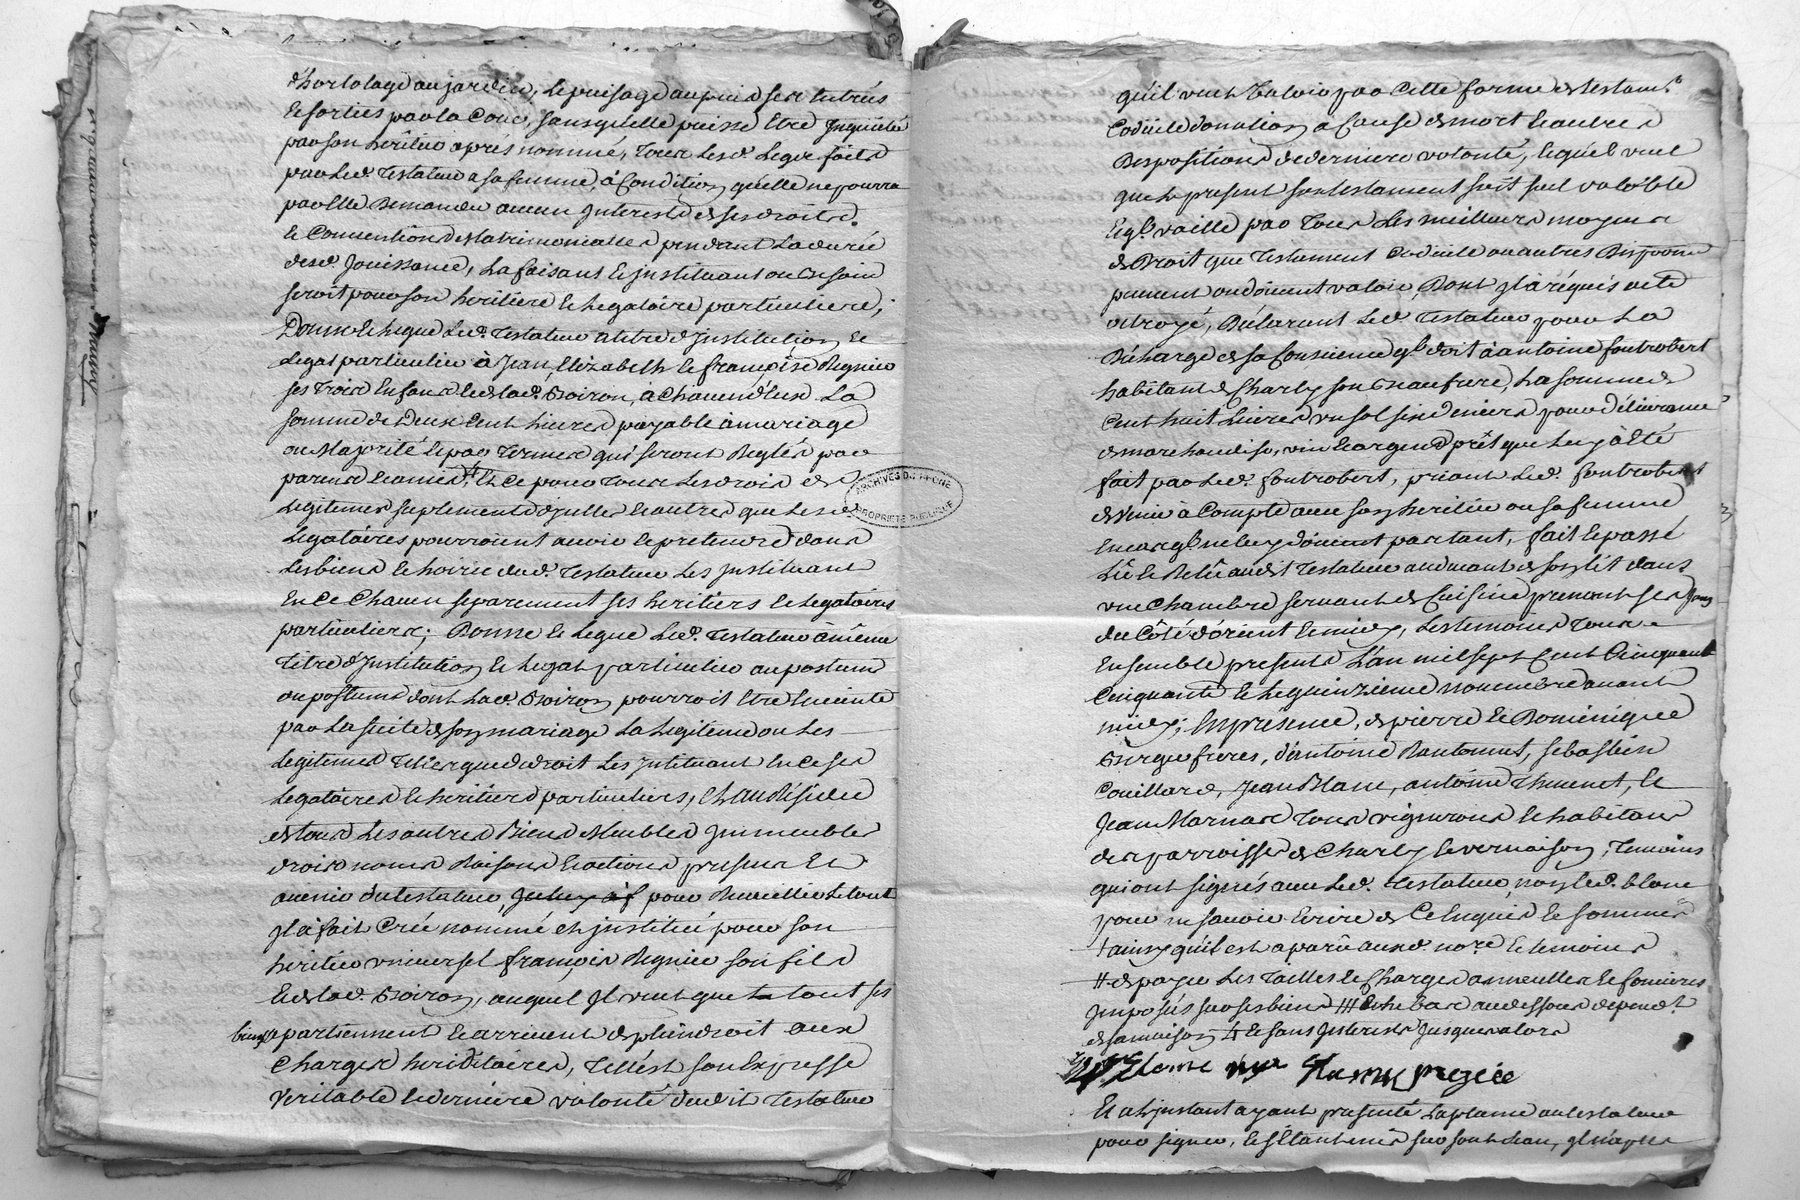 d'hortolage au jardin, le puisage au puis ses entrées
et sorties par la Cour, sans qu'elle puisse Etre Inquiétée
par son héritier après nommé, Tous Lesd. Legue faits
par Led. Testateur a sa femme, à Condition quelle ne pourra
par Elle Demander aucun Interest de ses droits
et Conventions Matrimonialles pendant La durée
desd. Jouissance, La faisant et Instituant ou Besoin
seroit pour son heritiere et Legataire particuliere;
Donne et Legue Led. Testateur a titre d'Institution et
Legat particulier à Jean, Elizabeth et françoise Regnier
ses Trois Enfans et de lad. Boiron, à Chacun d'Eux La
somme de Deux Cent Livres payable à mariage
ou Majorité et par Termes qui seront Reglés par
parens et amis, Et Ce pour Tous Les droits de
Legitimes suplement d'jcelles et autres que Lesd.
Legataires pourroient avoir et pretendre dans
Les biens et hoirie dud. Testateur Les Instituant
En Ce Chacun separement ses heritiers et Legataires
particuliers; Donne et Legue Led. Testateur à même
Titre d'Institution et Legat particulier au postume
ou postumes dont Lad. Boiron pourroit Etre Enceinte
par La suite de son mariage La Legitime ou Les
Legitimes Telles que de droit Les Instituant En Ce ses
Legataires et heritiers particuliers, Et au Residu
de tous Les autres Biens Meubles Immeubles
droits noms Raisons et actions presens Et
avenir du testateur, pour Recueillir Le tout
Il a fait Créé nommé et institué pour son
heritier universel françois Regnier son fils
Et de lad. Boiron, auquel Il veut que tout ses
biens apartiennent et arrivent de plein droit aux
Charges hereditaires, Telle est son Expresse
Veritable et derniere volonté dudit Testateur
qu'il veut Valoir par Cette forme de testamt.
Codicile donation a Cause de mort et autres
Dispositions de derniere volonté, lequel veut
que le present son testament soit seul valable
Et ql. vaille par Tous Les meilleurs moyens
de Droit que Testament Codicile ou autres Dispositions
peuvent ou doivent valoir, Dont Il a requis acte
octroyé, Déclarant Led. Testateur pour La
Décharge de sa Conscience ql. doit à antoine fontrobert
habitant de Charly son Beaufrere, La somme de
Cent huit Livres un sol six deniers pour délivrance
de marchandise, vin et argent prêt que Luy à Eté
fait par Led. fontrobert, priant Led. fontrobert
de venir à Compte avec son heritier ou sa femme
En cas ql. ne luy doivent pas tant, fait et passé
Lû et Relû audit Testateur au devant de son lit dans
une Chambre servant de Cuisine prenant ses jours
du Côté d'orient et midy, Les temoins Tous
Ensemble presents L'an mil sept Cent Cinquante
Cinquante et Le quinzieme novembre avant
midy; En presence, de pierre et Dominique
freres, d'antoine Bantonnet, sebastien
Couillard, Jean Blanc, antoine Thevenet, et
Jean Marnas Tous vignerons et habitans
des parroisses de Charly et vernaison, Temoins
qui ont signés avec Led. Testateur, non led. blanc
pour ne savoir Ecrire de Ce Enquis et sommés
+ ainsy qu'il est aparû auxd. nore. et temoins
# de payer Les Tailles et Charges annuelles et foncieres
Imposés sur ses biens /// et le bas au dessous dépendt.
de sa maison et sans Interests jusques alors
Et a l'instant ayant presenté La plume au testateur
pour signer, et s'étant mis sur sont lean, Il n'a peu
ARCHIVES DU RHONE
PROPRIÉTÉ PUBLIQUE